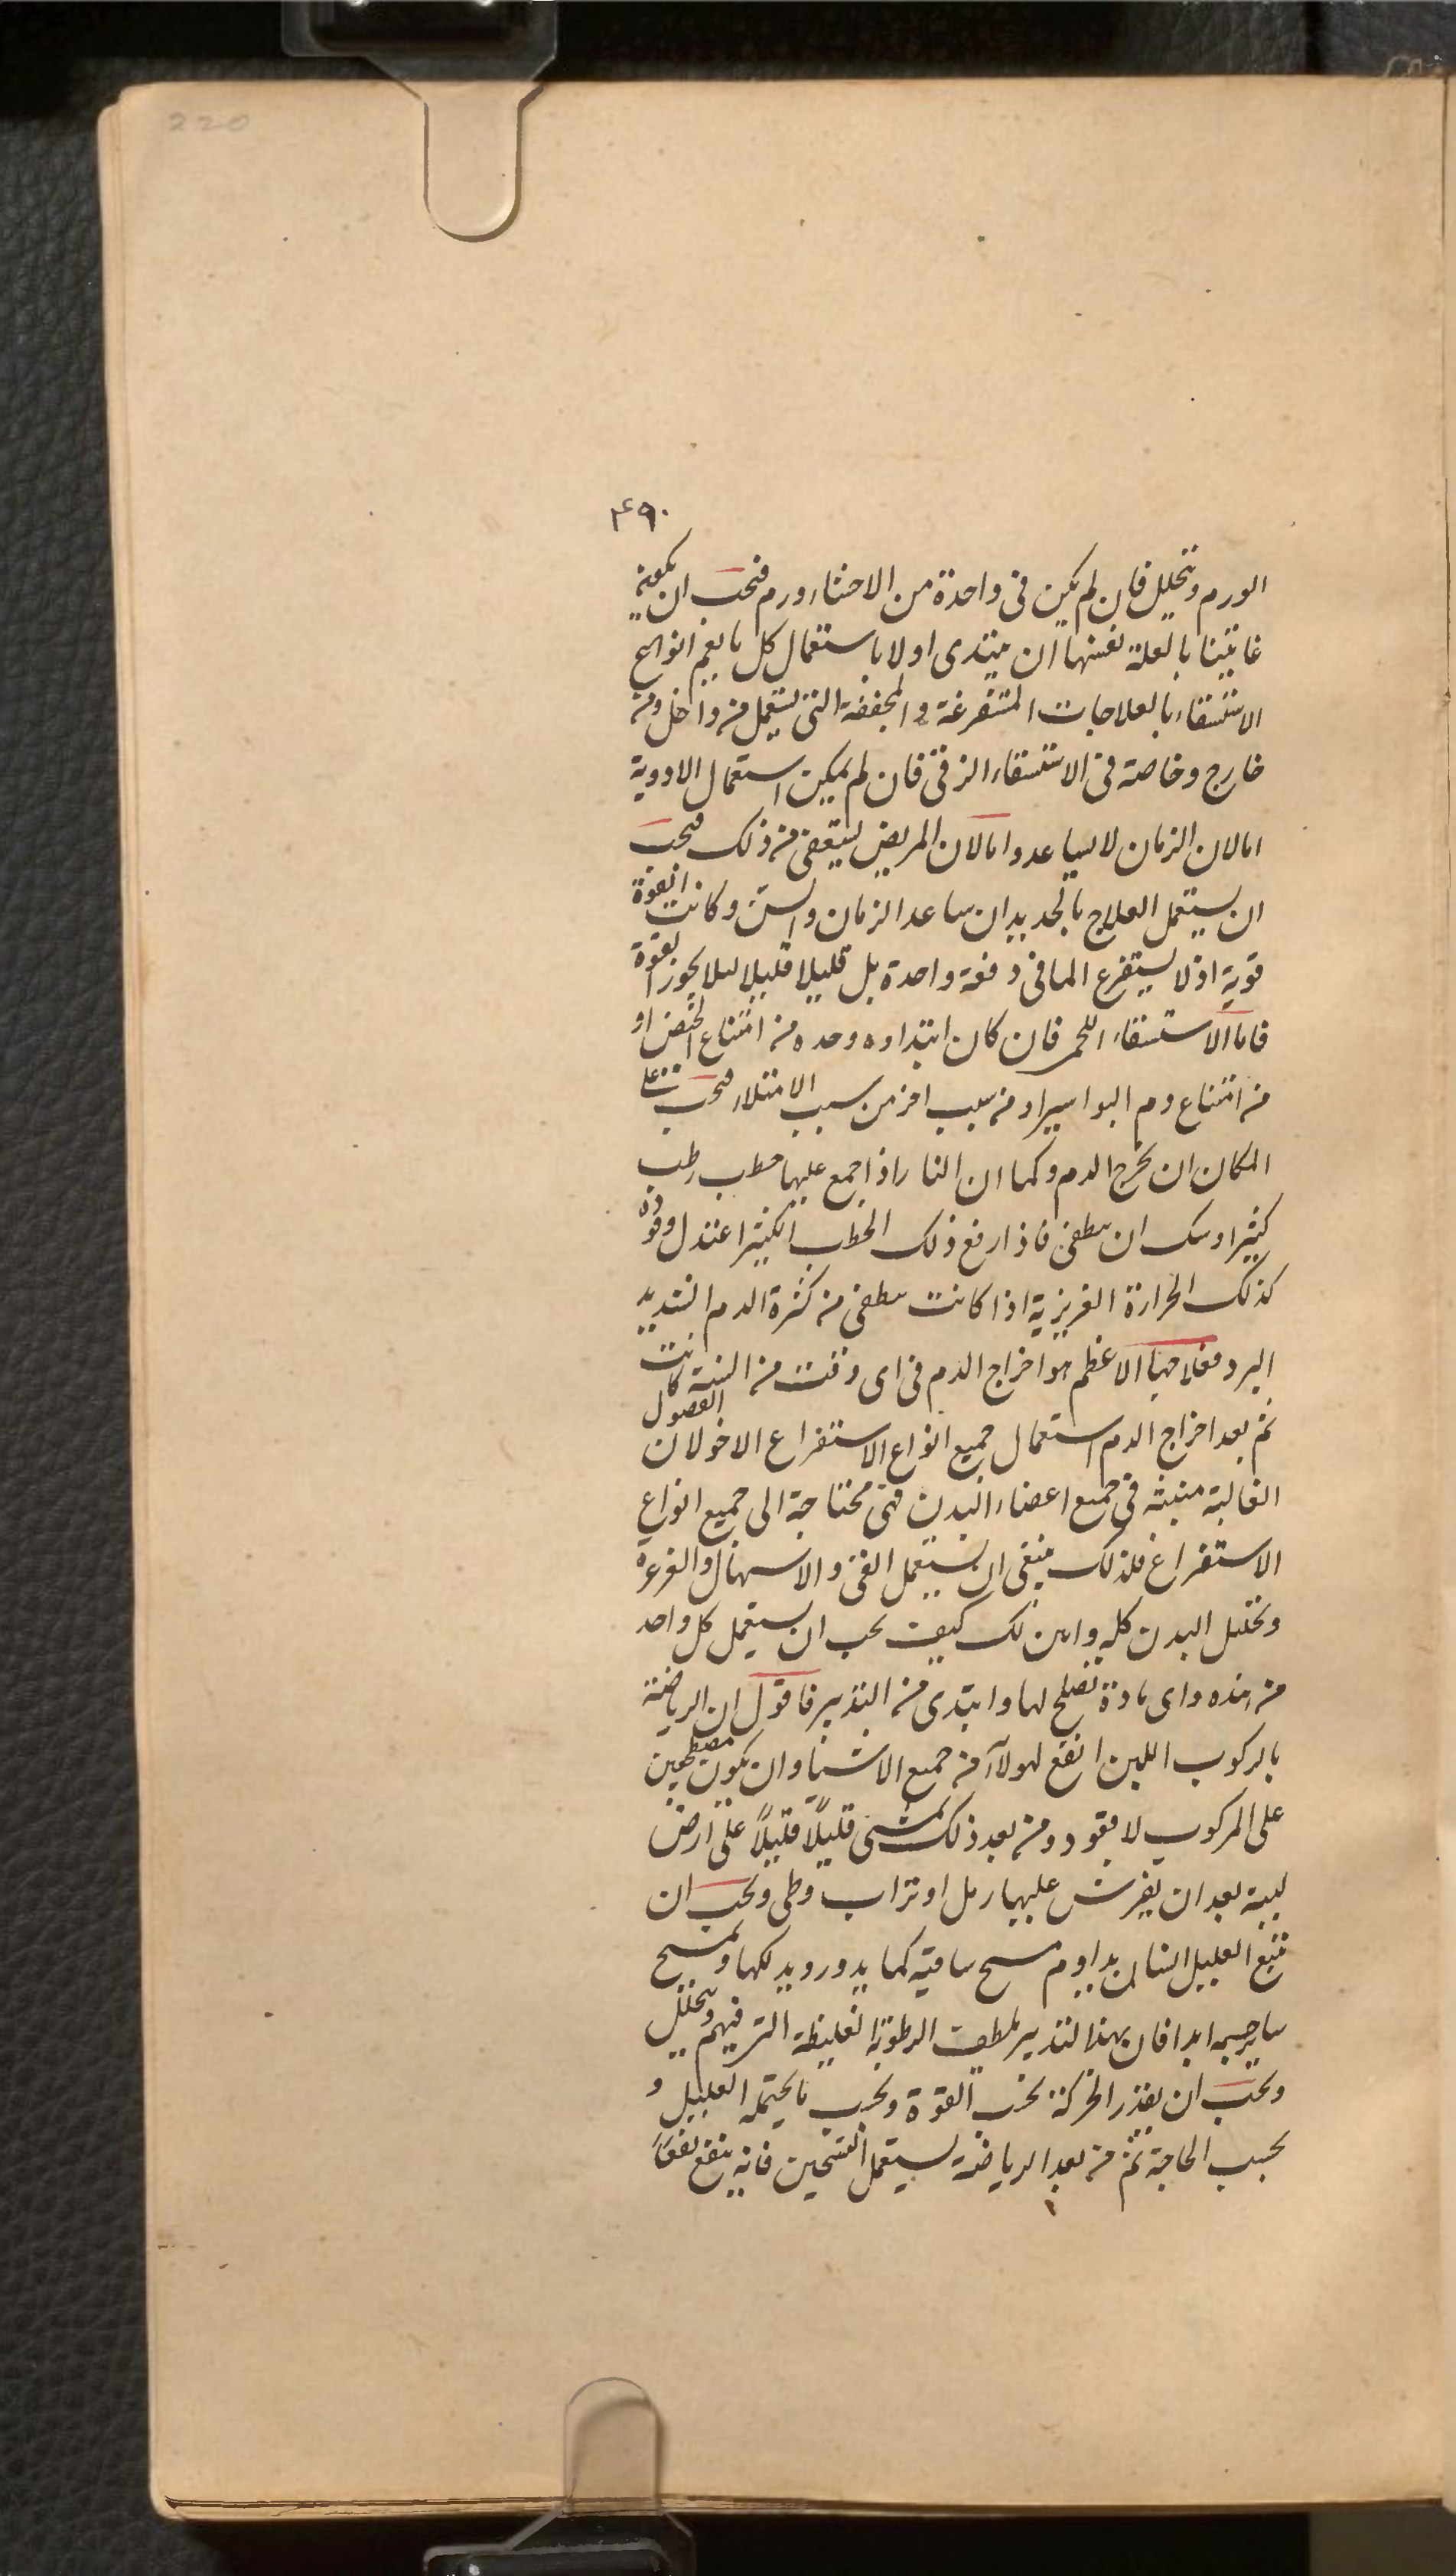 220
۴۹۰
الورم وتحليل فان لم يكن فى واحدة من الاحشاء ورم فيجب ان يكون
غايتنا بالعلة نفسها ان يبتدى اولا باستعمال كل ما يعم انواع
الاستسقاء بالعلاجات المستفرغة والمجففة التى تستعمل من داخل ومن
خارج وخاصة فى الاستسقاء الزقى فان لم يمكن استعمال الادوية
اما لان الزمان لا يساعد واما لان المريض يستعفى من ذلك فيجب
ان يستعمل العلاج بالحديد ان ساعد الزمان والسن وكانت القوة
قوية اذ لا يستفرغ الما فى دفعة واحدة بل قليلا قليلا ليلا يخور القوة
فاما الاستسقاء اللحمى فان كان ابتداوه وحده من امتناع الحيض او
من امتناع دم البواسير او من سبب اخر من سبب الامتلاء فيجب على
المكان ان يخرج الدم وكما ان النار اذا جمع عليها حطب رطب
كثير اوشك ان يطفى فاذا رفع ذلك الحطب الكثير اعتدل وقوده
كذلك الحرارة الغريزية اذا كانت يطفى من كثرة الدم الشديد
البرد فعلاجها الاعظم هو اخراج الدم فى اى وقت من السنة كانت
ثم بعد اخراج الدم استعمال جميع انواع الاستفراغ الاخر لان الفصول
الغالبة منبثه فى جميع اعضاء البدن فهى محتاجة الى جميع انواع
الاستفراغ فلذلك ينبغى ان يستعمل القى والاسهال والغرغرة
وتحليل البدن كله وابين لك كيف يجب ان يستعمل كل واحد
من هذه واى مادة تصلح لها وابتدى من التدبير فاقول ان الرياضة
بالركوب اللين انفع لهولآء من جميع الاشياء وان يكون مضطجعين
على المركوب لا يقود ومن بعد ذلك تمشى قليلًا قليلًا على ارض
لينة بعد ان يفرش عليها رمل او تراب وطى ويجب ان
يتبع العليل انسان يداوم مسح ساقيه كما يدور ويدلكها ويمسح
ساير جسمه ابدا فان بهذا التدبير يلطف الرطوبة الغليظة التى فيهم ويتحلل
ويجب ان يقدر الحركة بحسب القوة وبحسب ما يحتمله العليل و
بحسب الحاجة ثم من بعد الرياضة يستعمل التسخين فانه ينفع نفعًا